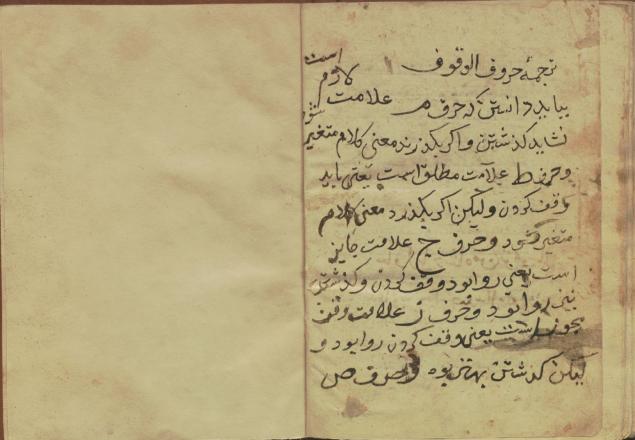 ترجمهٔ حروف الوقوف
بباید دانستن که حرف م علامت لازم است
نشاید کذشتن و اکر بکذرند معنی کلام متغیر شود
و حرف ط علامت مطلق است یعنی باید
وقف کردن ولیکن اکر بکذرد معنی کلام
متغیر نشود و حرف ج علامت جایز
است یعنی روا بود وقف کردن و کذشتن
نیز روا بود و حرف ز علامت وقف
مجوز است یعنی وقف کردن روا بود و
لیکن کذشتن بهتر بود و حرف ص